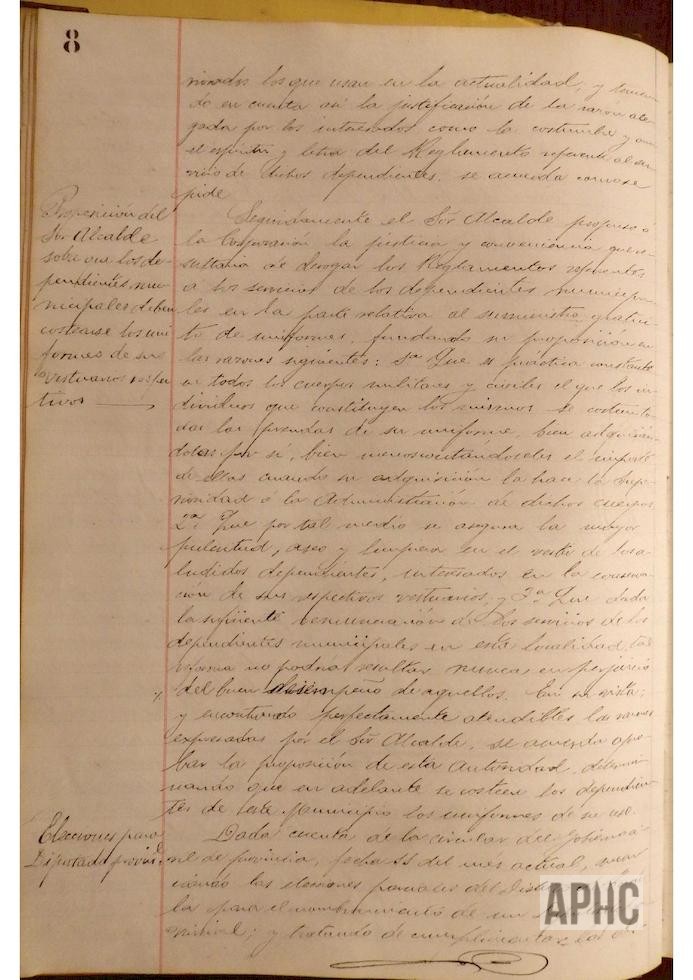 8
minados los que usan en la actualidad, y tenien-
do en cuenta así la justificación de la razon ale-
gada por los interesados como la costumbre y aun
el espíritu y letra del Reglamento referente al ser-
vicio de dichos dependientes, se acuerda como se
pide
Proposición del
Sór Alcalde
sobre que los de-
pendientes mu-
nicipales deben
costearse los uni
formes de sus
vestuarios respec
tivos
Seguidamente el Sór Alcalde propuso á
la Corporación la justicia y conveniencia que re-
sultaria de derogar los Reglamentos referentes
á los servicios de los dependientes municipa-
les en la parte relativa al suministro gratui-
to de uniformes, fundando su proposición en
las razones siguientes: 1ª Que es práctica constante
en todos los cuerpos militares y civiles el que los in-
dividuos que constituyen los mismos se costeen to-
das las prendas de su uniforme, bien adquirién-
dolas por sí, bien descontándoseles el importe
de ellas cuando su adquisición la hace la supe-
rioridad ó la Administración de dichos cuerpos
2ª Que por tal medio se asegura la mayor
pulcritud, aseo y limpieza en el vestir de los a-
ludidos dependientes, interesados en la conserva-
ción de sus respectivos vestuarios; y 3ª Que dada
la suficiente remuneración de los servicios de los
dependientes municipales en esta localidad, tal
reforma no podría resultar nunca en perjuicio
del buen desempeño de aquellos. En su vista;
y encontrando perfectamente atendibles las razones
expresadas por el Sór Alcalde, se acuerda apro-
bar la proposición de esta Autoridad, determi-
nando que en adelante se costeen los dependien-
tes de este Municipio los uniformes de su uso.
Elecciones para
Diputado provin
Dada cuenta de la circular del Gobierno ci-
vil de provincia, fecha 11 del mes actual, anun
ciando las elecciones parciales del
la para el nombramiento de un
vincial; y tratando de cumplimentar
APHC